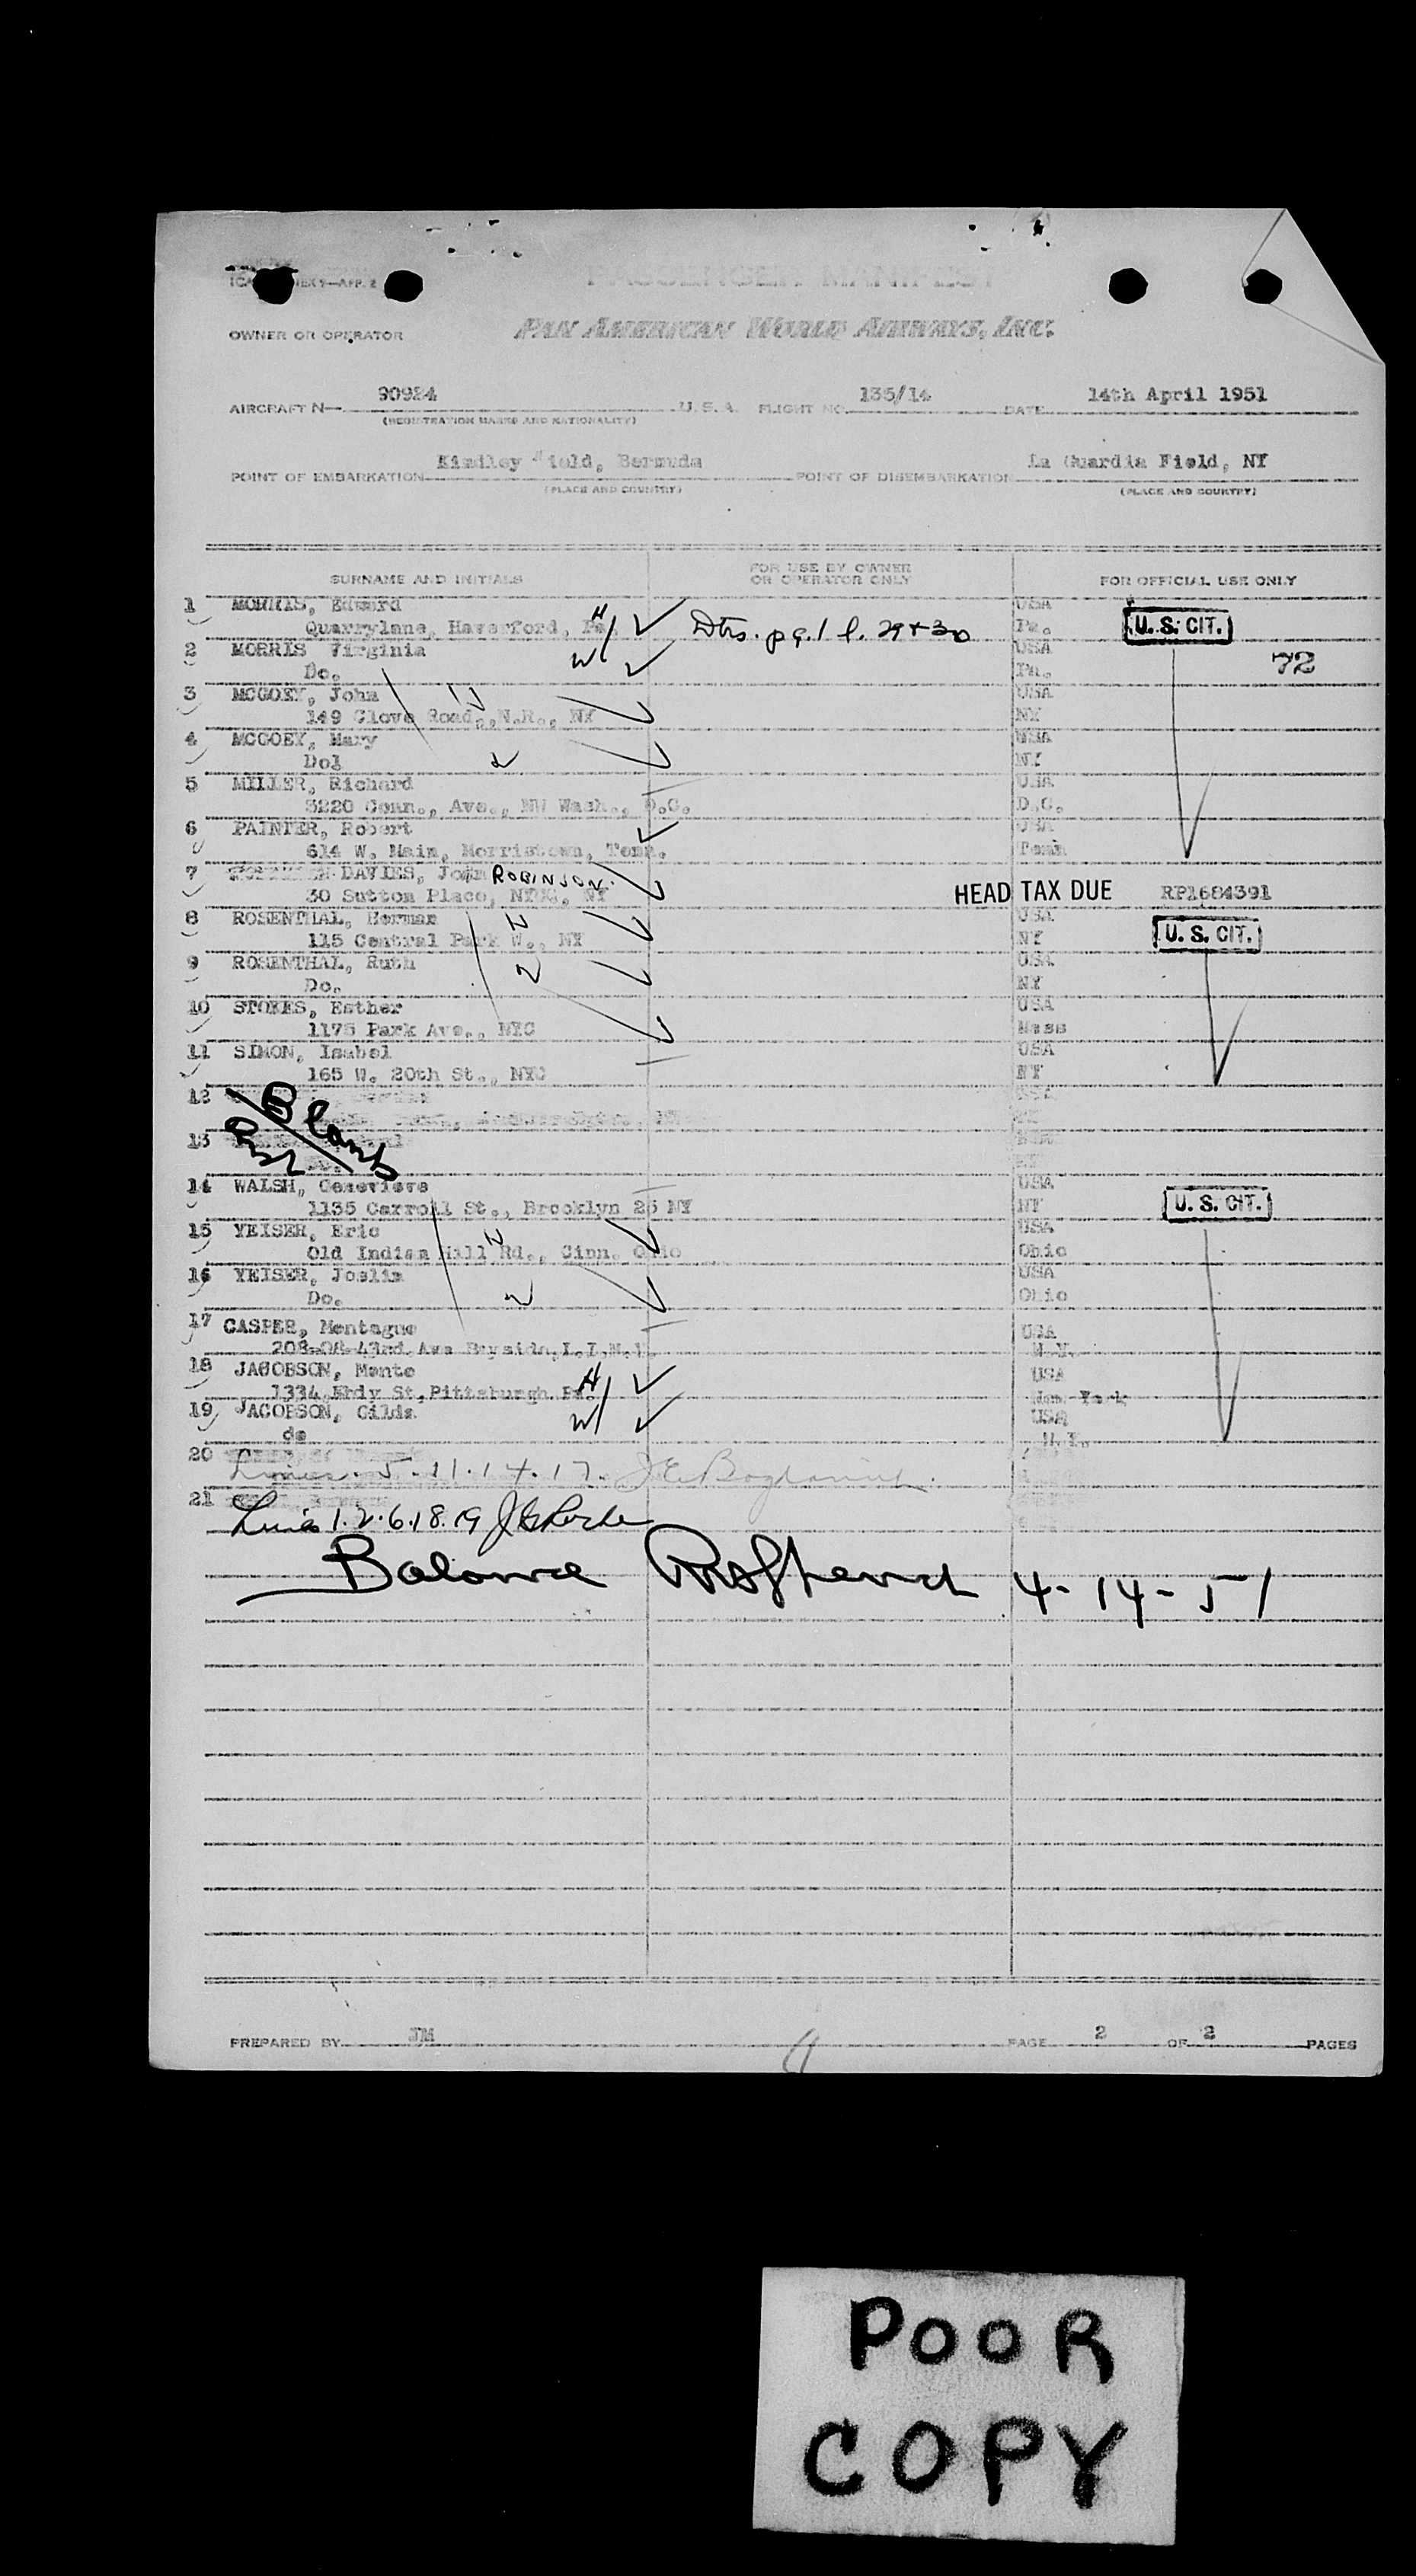 PASSENGER MANIFEST
OWNER OR OPERATOR PAN AMERICAN WORLD AIRWAYS, INC.
AIRCRAFT N— 90924 U.S.A. FLIGHT NO. 135/14 DATE 14th April 1951
(REGISTRATION MARKS AND NATIONALITY)
POINT OF EMBARKATION Kindley Field, Bermuda POINT OF DISEMBARKATION La Guardia Field, NY
(PLACE AND COUNTRY) (PLACE AND COUNTRY)
SURNAME AND INITIALS FOR USE BY OWNER OR OPERATOR ONLY FOR OFFICIAL USE ONLY
1 MORRIS, Edward USA
Quarrylane, Haverford, Pa. H Dtrs. pg. 1 l. 29 + 30 Pa. U. S. CIT.
2 MORRIS Virginia W USA 72
Do. Pa.
3 MCGOEY, John H USA
149 Clove Road,,N.R., NY NY
4 MCGOEY, Mary USA
Do1 W NY
5 MILLER, Richard USA
5220 Conn., Ave., NW Wash., D.C. D.C.
6 PAINTER, Robert USA
614 W. Main, Morristown, Tenn. Tenn
7 DAVIES, John ROBINSON.
30 Sutton Place, NY HEAD TAX DUE RP1684391
8 ROSENTHAL, Herman H USA
115 Central Park W., NY NY U. S. CIT.
9 ROSENTHAL, Ruth W USA
Do. NY
10 STOKES, Esther USA
1175 Park Ave., NYC Mass
11 SIMON, Isabel USA
165 W. 20th St., NYC NY
12 Blank
13
14 WALSH, Genevieve USA
1135 Carroll St., Brooklyn 25 NY NY U. S. CIT.
15 YEISER, Eric H USA
Old Indian Hill Rd., Cinn. Ohio Ohio
16 YEISER, Joslin USA
Do. W Ohio
17 CASPER, Montague USA
208-08-43rd. Ave Bayside, L.I.N.Y. N.Y.
18 JACOBSON, Monte H USA
1334 St, Pittsburgh Pa. New York
19 JACOBSON, Gilda W USA
do N.Y.
20 Lines. 5. 11. 14. 17.
21 Lines 1. 2. 6. 18. 19
Balance 4-14-51
PREPARED BY JM PAGE 2 OF 2 PAGES
POOR
COPY